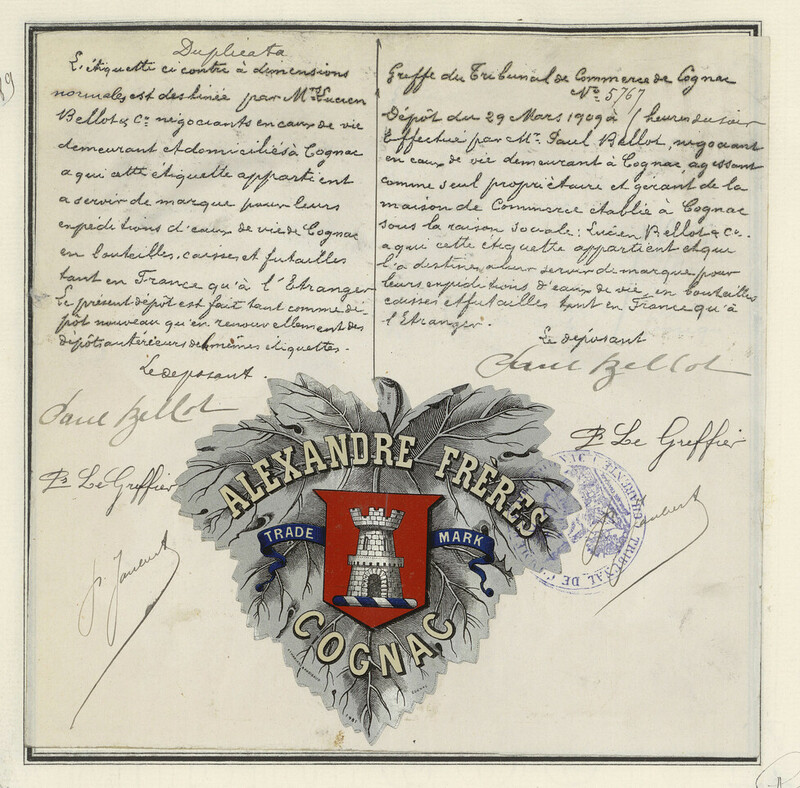 Duplicata
L'étiquette ci contre à dimensions
normales est destinée par Mr. Lucien
Bellot & Co. négociants en eaux de vie
demeurant et domiciliés à Cognac
a qui cette étiquette appartient
a servir de marque pour leurs
expéditions d'eaux de vie de Cognac
en bouteilles, caisses et futailles
tant en France qu'à l'Etranger
Le présent dépôt est fait tant comme dé-
pôt nouveau qu'en renouvellement des
dépôts antérieurs des mêmes étiquettes.
Le déposant.
Paul Bellot
Pr. Le Greffier
Greffe du Tribunal de Commerce de Cognac
No. 5767
Dépôt du 29 Mars 1909 à 1 heures du soir
Effectué par Mr. Paul Bellot, négociant
en eaux de vie demeurant à Cognac, agissant
comme seul propriétaire et gérant de la
maison de Commerce établie à Cognac
sous la raison sociale: Lucien Bellot & Co.
a qui cette étiquette appartient et que
l'a destinée a leur servir de marque pour
leurs expéditions d'eaux de vie, en bouteilles
caisses et futailles tant en France qu'à
l'Etranger.
Le déposant
Paul Bellot
Pr. Le Greffier
ALEXANDRE FRÈRES
TRADE MARK
COGNAC
TRIBUNAL DE